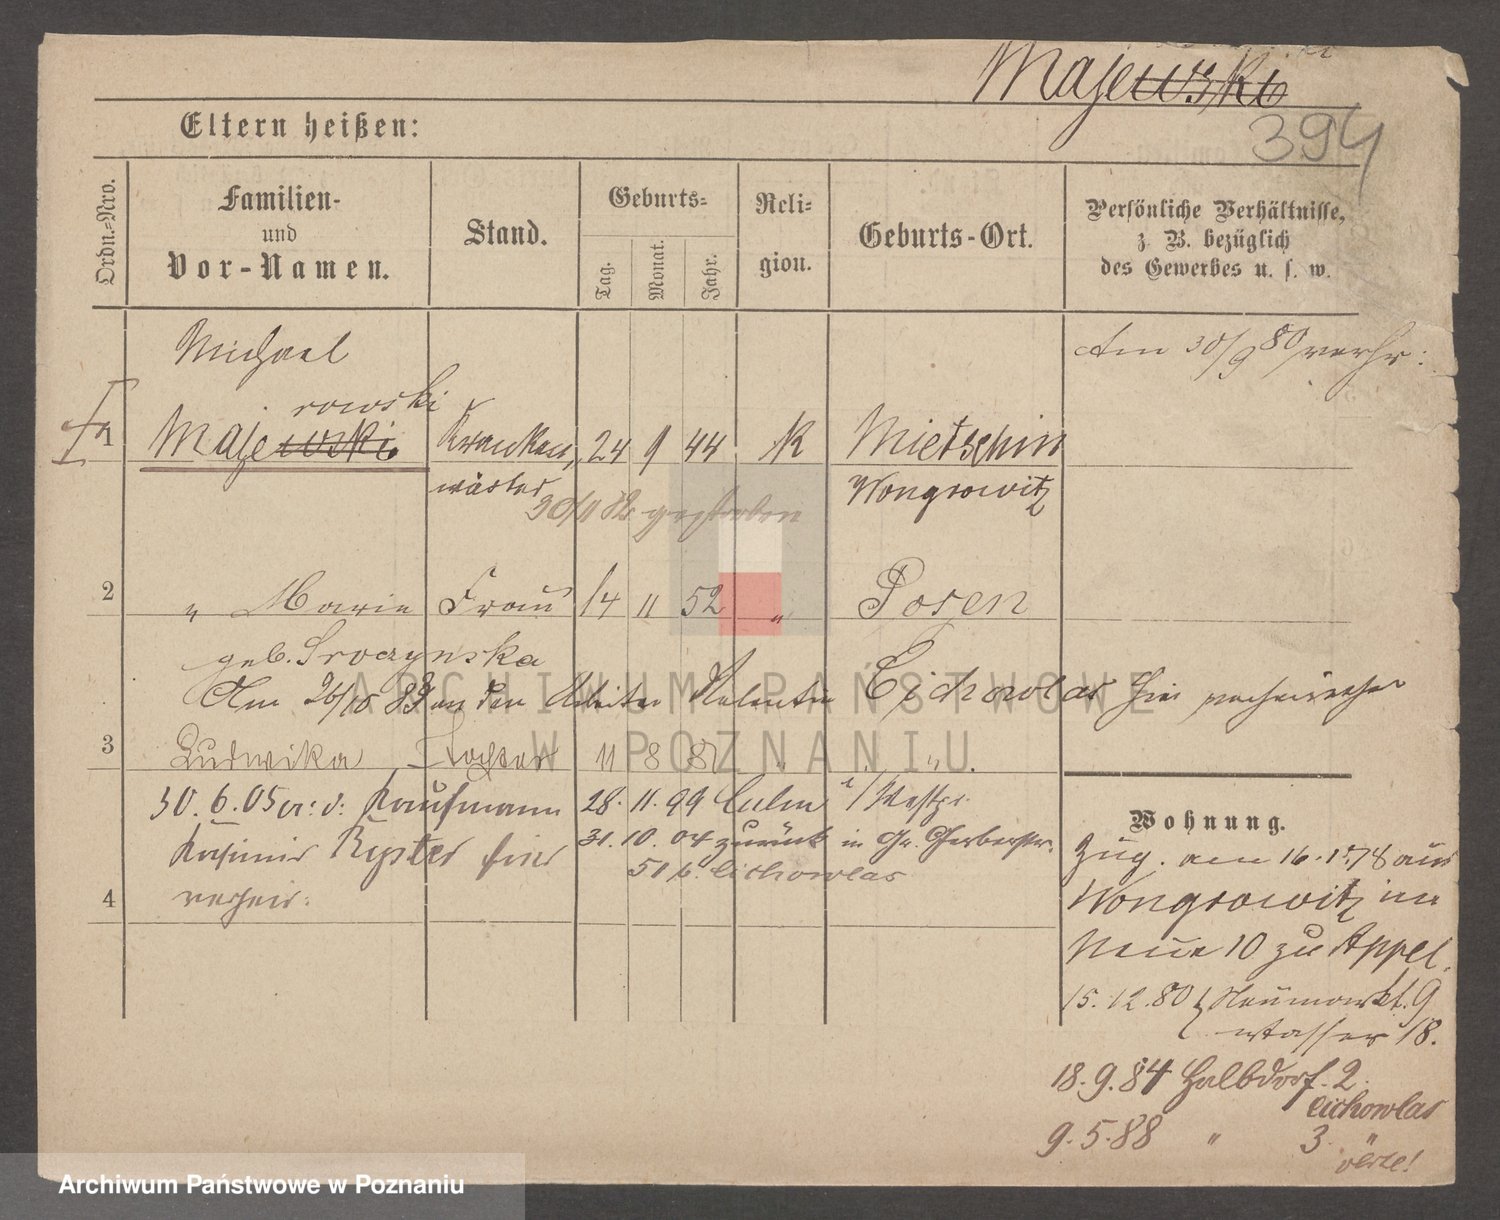 Majewski
394
Eltern heißen:
Ordn.-Nro.
Familien-
und
Vor-Namen.
Stand.
Geburts-
Tag.
Monat.
Jahr.
Reli-
gion.
Geburts-Ort.
Persönliche Verhältnisse,
z. B. bezüglich
des Gewerbes u. s. w.
Michael
Am 30/9 80 verh:
rowski
1 Majewski Kranken, 24 9 44 K Mietschin
wärter Wongrowitz
gestorben
2 " Marie Frau 14 11 52 " Posen
geb. Sroczynska
Am 26/10 89 an den Arbeiter Valentin Cichowlas hier
ARCHIWUM PAŃSTWOWE
W POZNANIU
3 Ludwika Tochter 11 8 " "
30. 6. 05 Kaufmann 28. 11. 99 Culm i/Westpr.
Kasimir hier 31. 10. 04 zurück in Gr. Gerberstr.
51 b. Cichowlas
4 verheir:
Wohnung.
Zug. am 16. 78 aus
Wongrowitz
10 zu Appel.
15. 12. 80 Neumarkt. 9
Wasser 18.
18. 9. 84 Halbdorf. 2
Cichowlas
9. 5. 88 " 3. "
Archiwum Państwowe w Poznaniu